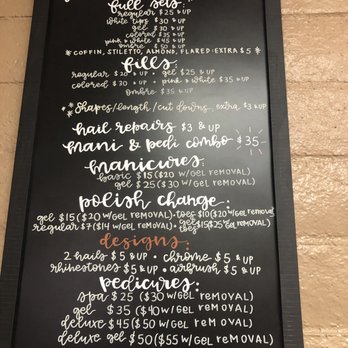 full sets:
regular $25 & up
white tips $30 & up
gel $30 & up
colored $35 & up
pink & white $45 & up
ombre $50 & up
*COFFIN, STILETTO, ALMOND, FLARED: EXTRA $5*
fills:
regular $20 & up • gel $25 & up
colored $30 & up • pink & white $35 & up
ombre $35 & up
*Shapes/length/cut downs... extra $3 & up
nail repairs $3 & up
mani & pedi combo $35
manicures:
basic $15 ($20 w/GEL REMOVAL)
gel $25 ($30 w/GEL REMOVAL)
polish change:
gel $15 ($20 w/GEL REMOVAL) • toes $10 ($20 w/GEL REMOVAL)
regular $7 ($14 w/GEL REMOVAL) • gel toes $15 ($25 GEL REMOVAL)
designs:
2 nails $5 & up • chrome $5 & up
rhinestones $5 & up • airbrush $5 & up
pedicures:
spa $25 ($30 w/GEL REMOVAL)
gel $35 ($40 w/GEL REMOVAL)
deluxe $45 ($50 w/GEL REMOVAL)
deluxe gel $50 ($55 w/GEL REMOVAL)